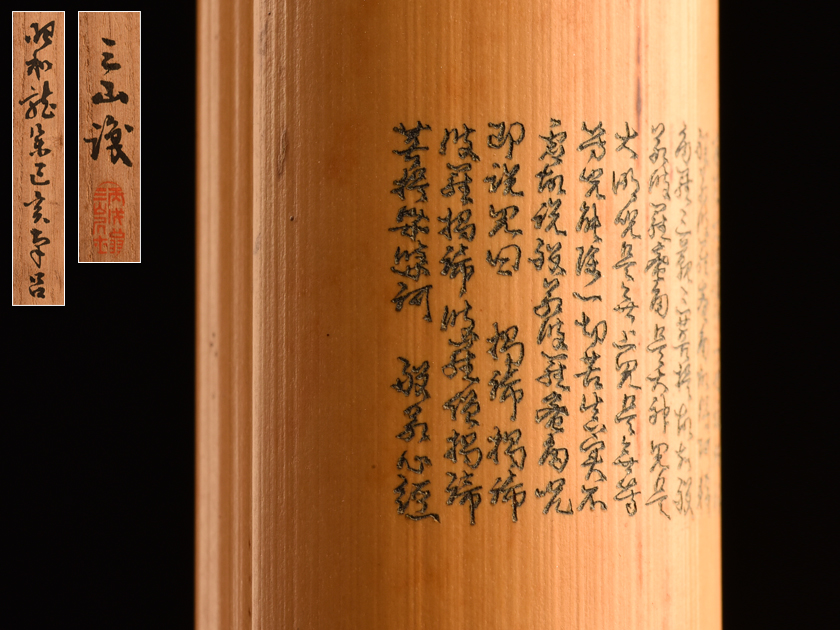 昭和龍集己亥南呂
三山識
多羅三藐三菩提故知般
若波羅蜜多是大神咒是
大明呪是無上咒是無等
等咒能除一切苦真実不
虚故説般若波羅蜜多呪
即説咒曰 揭諦 揭諦
波羅揭諦 波羅僧揭諦
菩提娑婆訶 般若心經